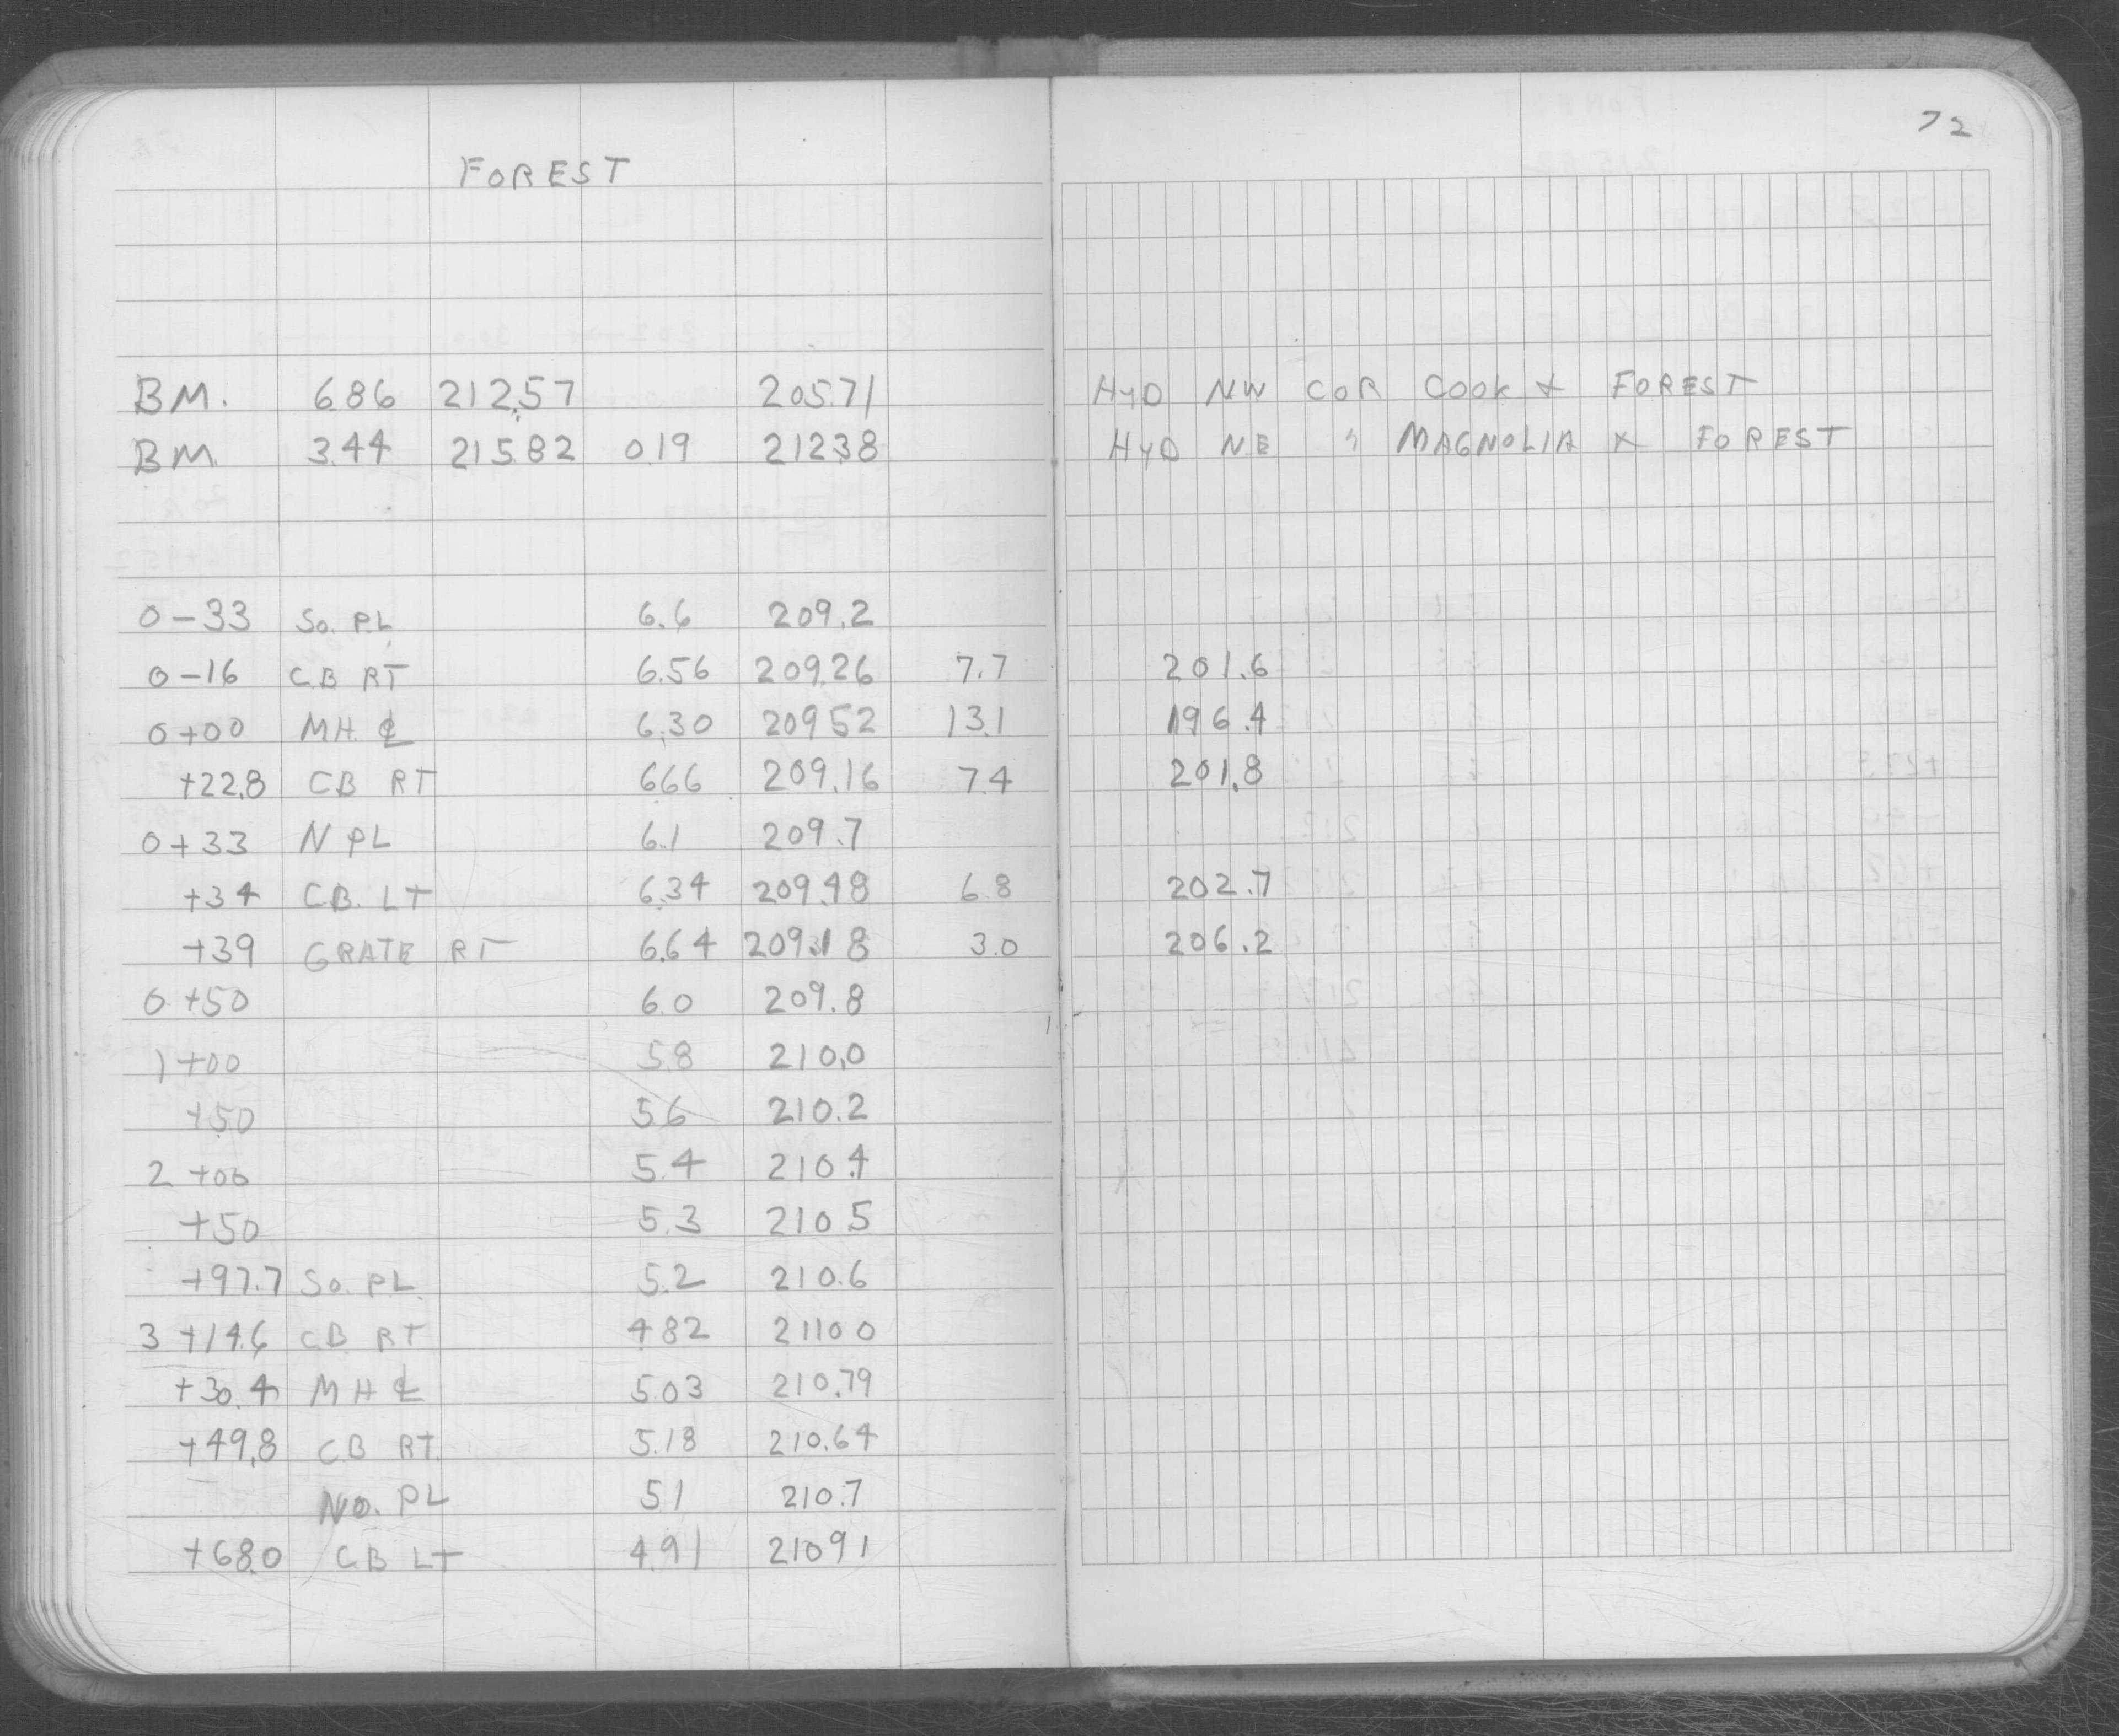 72
FOREST
BM. 6.86 212.57 205.71 HYD NW COR COOK & FOREST
BM 3.44 215.82 0.19 212.38 HYD NE " MAGNOLIA & FOREST
0-33 So. PL 6.6 209.2
0-16 CB RT 6.56 209.26 7.7 201.6
0+00 MH ℄ 6.30 209.52 13.1 196.4
+22.8 CB RT 6.66 209.16 7.4 201.8
0+33 N PL 6.1 209.7
+34 CB LT 6.34 209.48 6.8 202.7
+39 GRATE RT 6.64 209.18 3.0 206.2
0+50 6.0 209.8
1+00 5.8 210.0
+50 5.6 210.2
2+00 5.4 210.4
+50 5.3 210.5
+97.7 So. PL. 5.2 210.6
3+14.6 CB RT 4.82 211.00
+30.4 MH ℄ 5.03 210.79
+49.8 CB RT. 5.18 210.64
No. PL 5.1 210.7
+68.0 CB LT 4.91 210.91